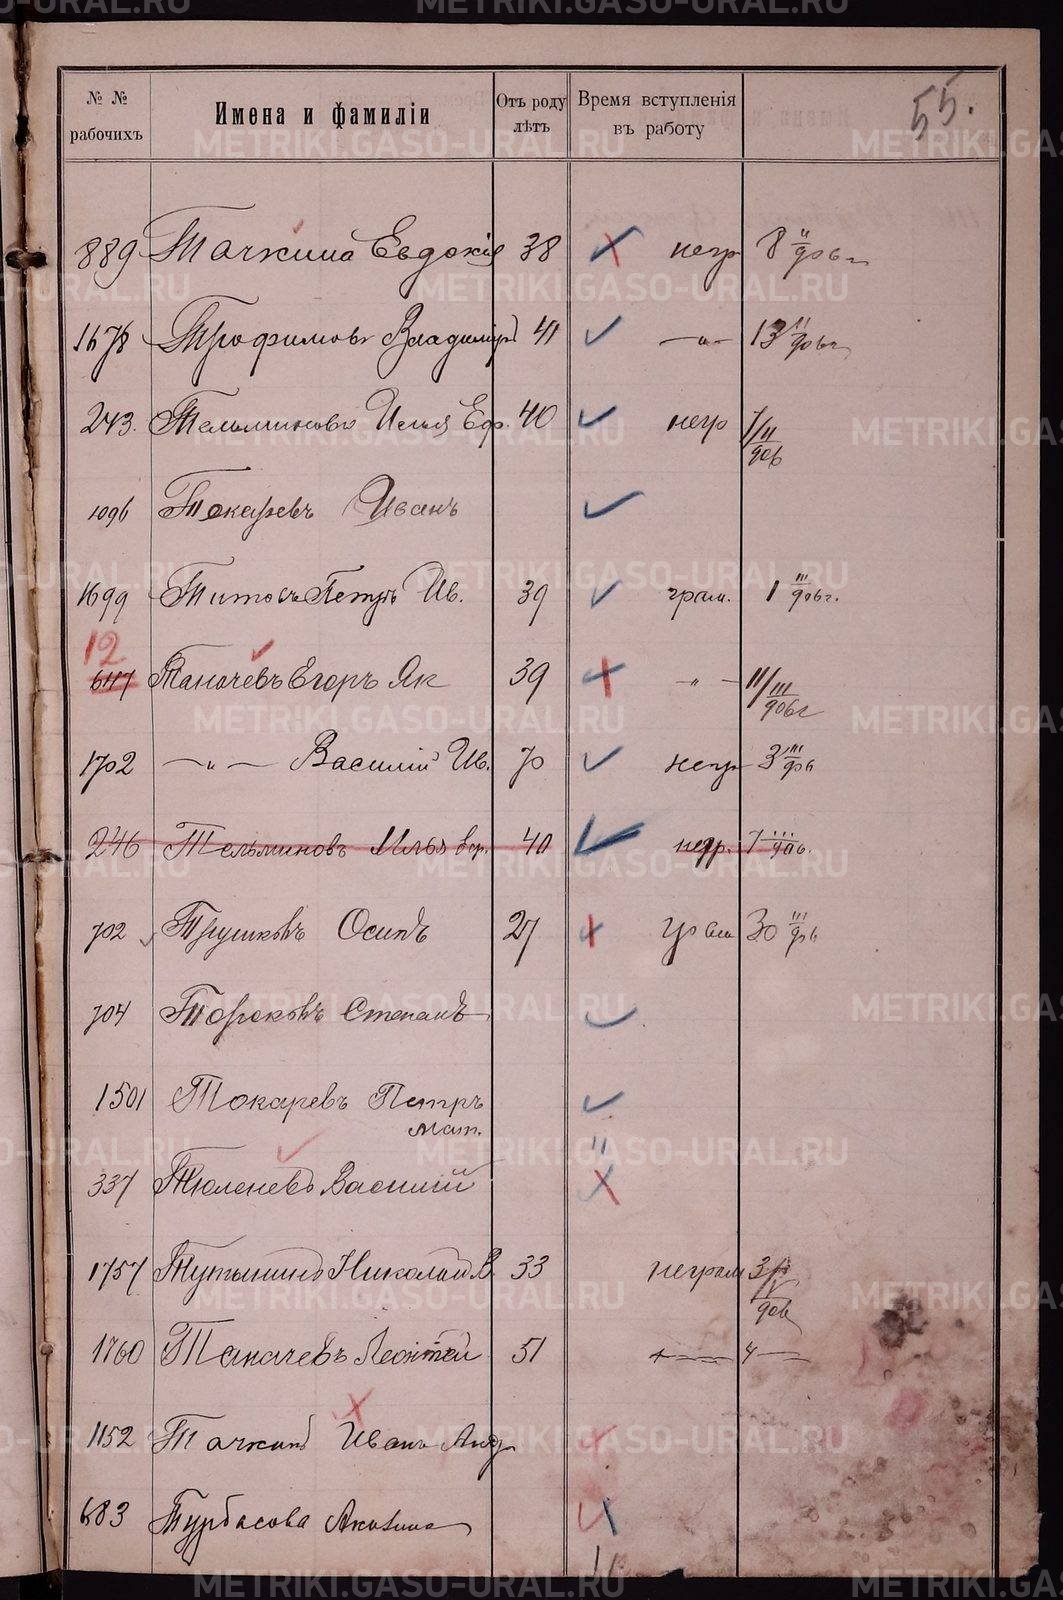 55.
№ № рабочихъ Имена и фамиліи Отъ роду лѣтъ Время вступленія въ работу
889 Точкина Евдокія 38 негр 8 II 906 г
1678 Трофимовъ Владиміръ 41 —"— 13 II 906 г
243. Тельминовъ Илья Еф. 40 негр 7/II 906
1096 Токаревъ Иванъ
1699 Титовъ Петръ Ив. 39 грам. 1 III 906 г.
12
647 Таначевъ Егоръ Як 39 —"— 11/III 906 г
1702 —"— Василій Ив. 70 негр 3 III 906
246 Тельминовъ Илья Еф. 40 негр. 7 III 906.
702 Трушковъ Осипъ 27 грам 30 III 906
704 Тороковъ Степанъ
1501 Токаревъ Петръ
Мат.
"
337 Тюленевъ Василій
1757 Тутынинъ Николай В. 33 неграм 3/IV 906
1760 Таначевъ Леонтий 51 —"— 4 —
1152 Точкинъ Иванъ Анд
683 Турбасова Акулина
METRIKI.GASO-URAL.RU